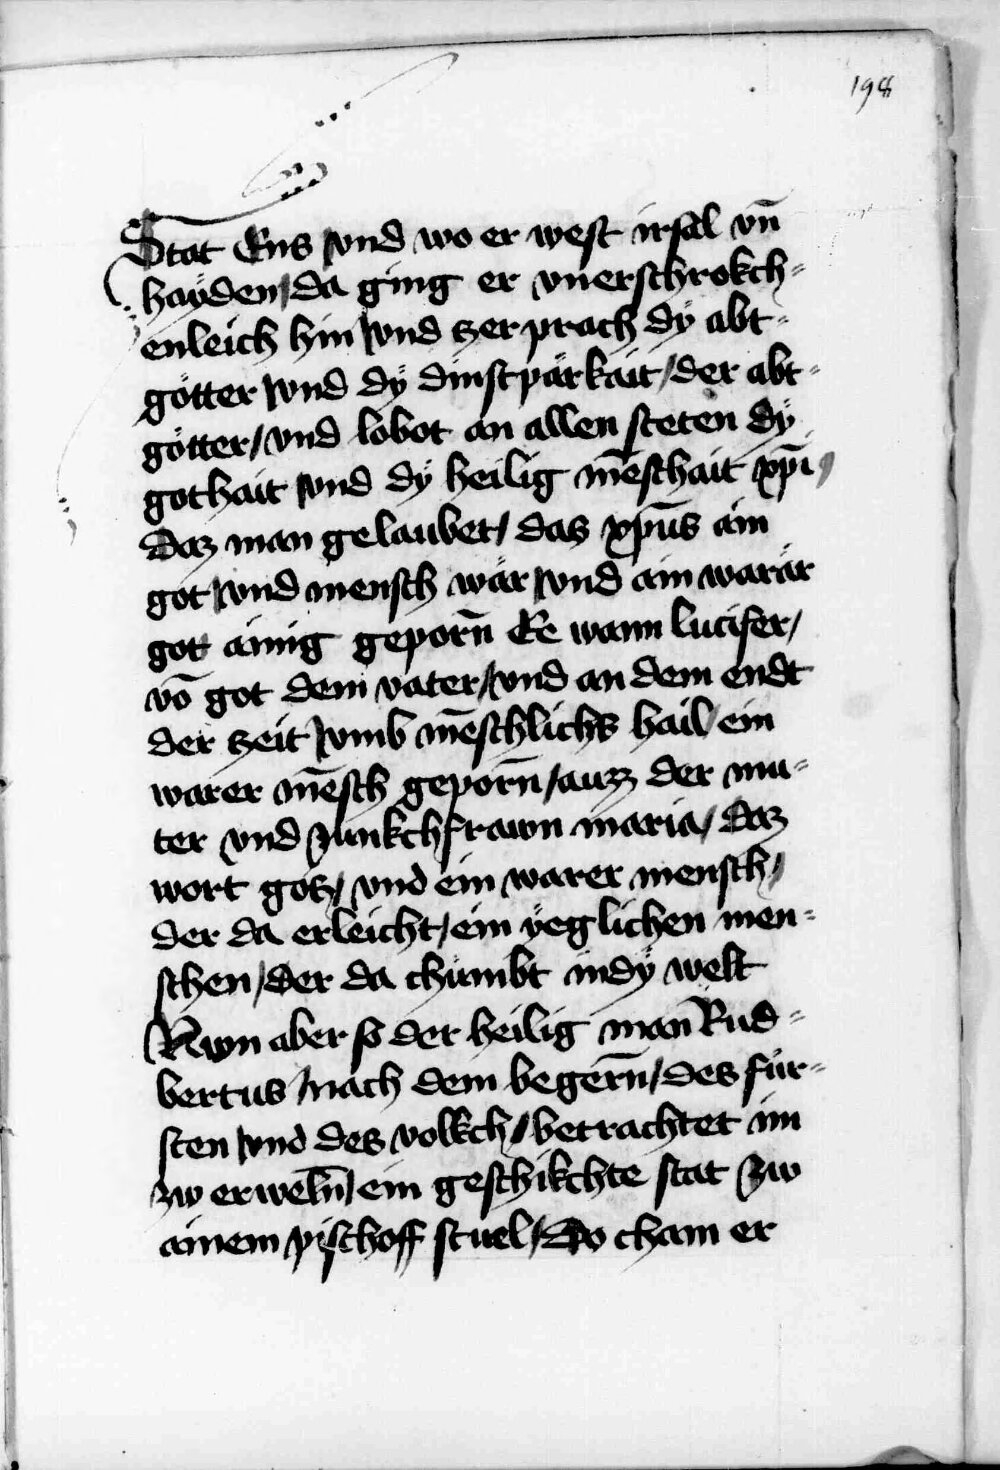 198
Stat Ens vnd wo er west irsal vn̄
hayden / da ging er vnerschrokch=
enleich hin vnd zerprach dÿ abt=
götter vnd dÿ dinstpärkait / der abt=
götter / vnd lobot an allen steten dÿ
gothait vnd dÿ heilig mēschait xp̄i
Daz man gelaubet / das xp̄us ain
got vnd mensch wär vnd ain warär
got ainig geporn̄ Ee wann lucifer /
vō got dem vater / vnd an dem endt
der zeit vmb mēschlichs hail / ein
warer mēsch geporn̄ / auzz der mu=
ter vnd Junkchfrawn maria / Daz
wort gotz / vnd ein warer mensch /
der da erleicht / ein yeglichen men=
schen / der da chümbt indÿ welt
Nwn aber so der heilig man Rud=
bertus / nach dem begern̄ / des für=
sten vnd des volkch / betrachtet im
zw erweln̄ / ein geschikchte stat zw
ainem pischoff stuel / Do cham er